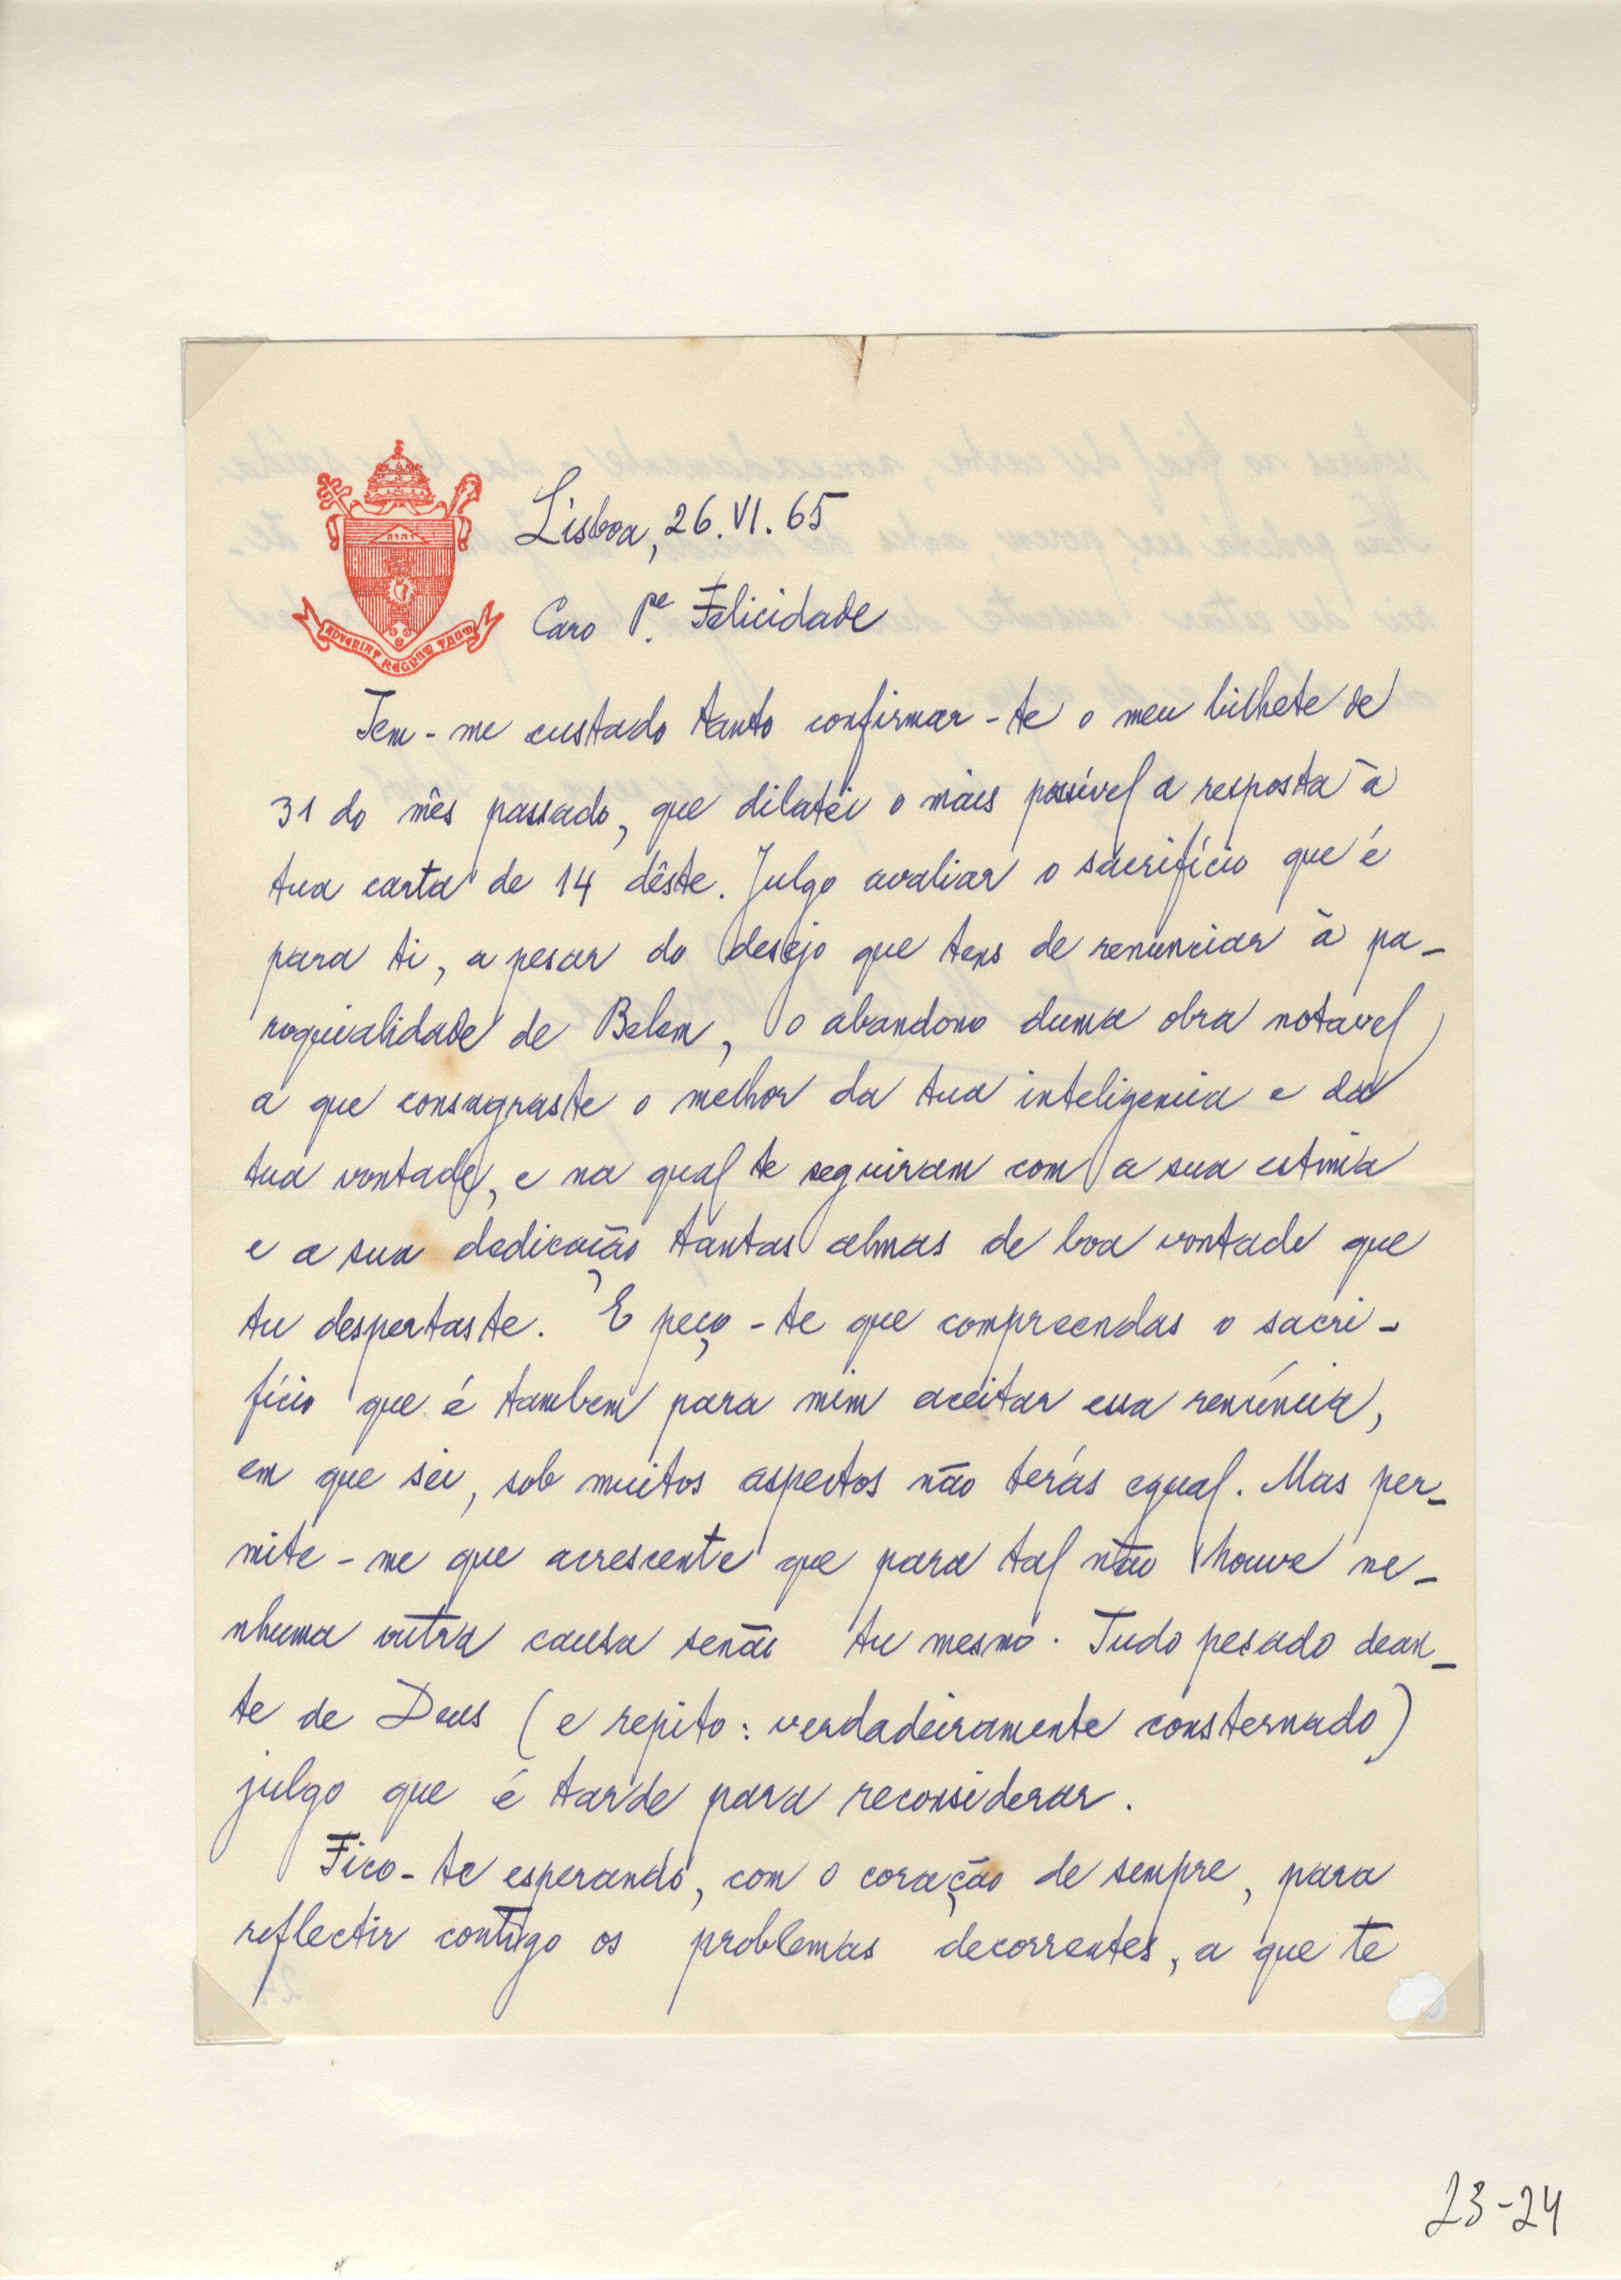 Lisboa, 26. VI. 65
ADVENIAT REGNUM TUUM
Caro Pe. Felicidade
Tem-me custado tanto confirmar-te o meu bilhete de
31 do mês passado, que dilatei o mais possível a resposta à
tua carta de 14 dêste. Julgo avaliar o sacrifício que é
para ti, a pesar do desejo que tens de renunciar à pa-
roquialidade de Belem, o abandono duma obra notavel
a que consagraste o melhor da tua inteligencia e da
tua vontade, e na qual te seguiram com a sua estima
e a sua dedicação tantas almas de boa vontade que
tu despertaste. E peço-te que compreendas o sacri-
fício que é tambem para mim aceitar essa renúncia,
em que sei, sob muitos aspectos não terás egual. Mas per-
mite-me que acrescente que para tal não houve ne-
nhuma outra causa senão tu mesmo. Tudo pesado dean-
te de Deus (e repito: verdadeiramente consternado)
julgo que é tarde para reconsiderar.
Fico-te esperando, com o coração de sempre, para
reflectir contigo os problemas decorrentes, a que te
23-24